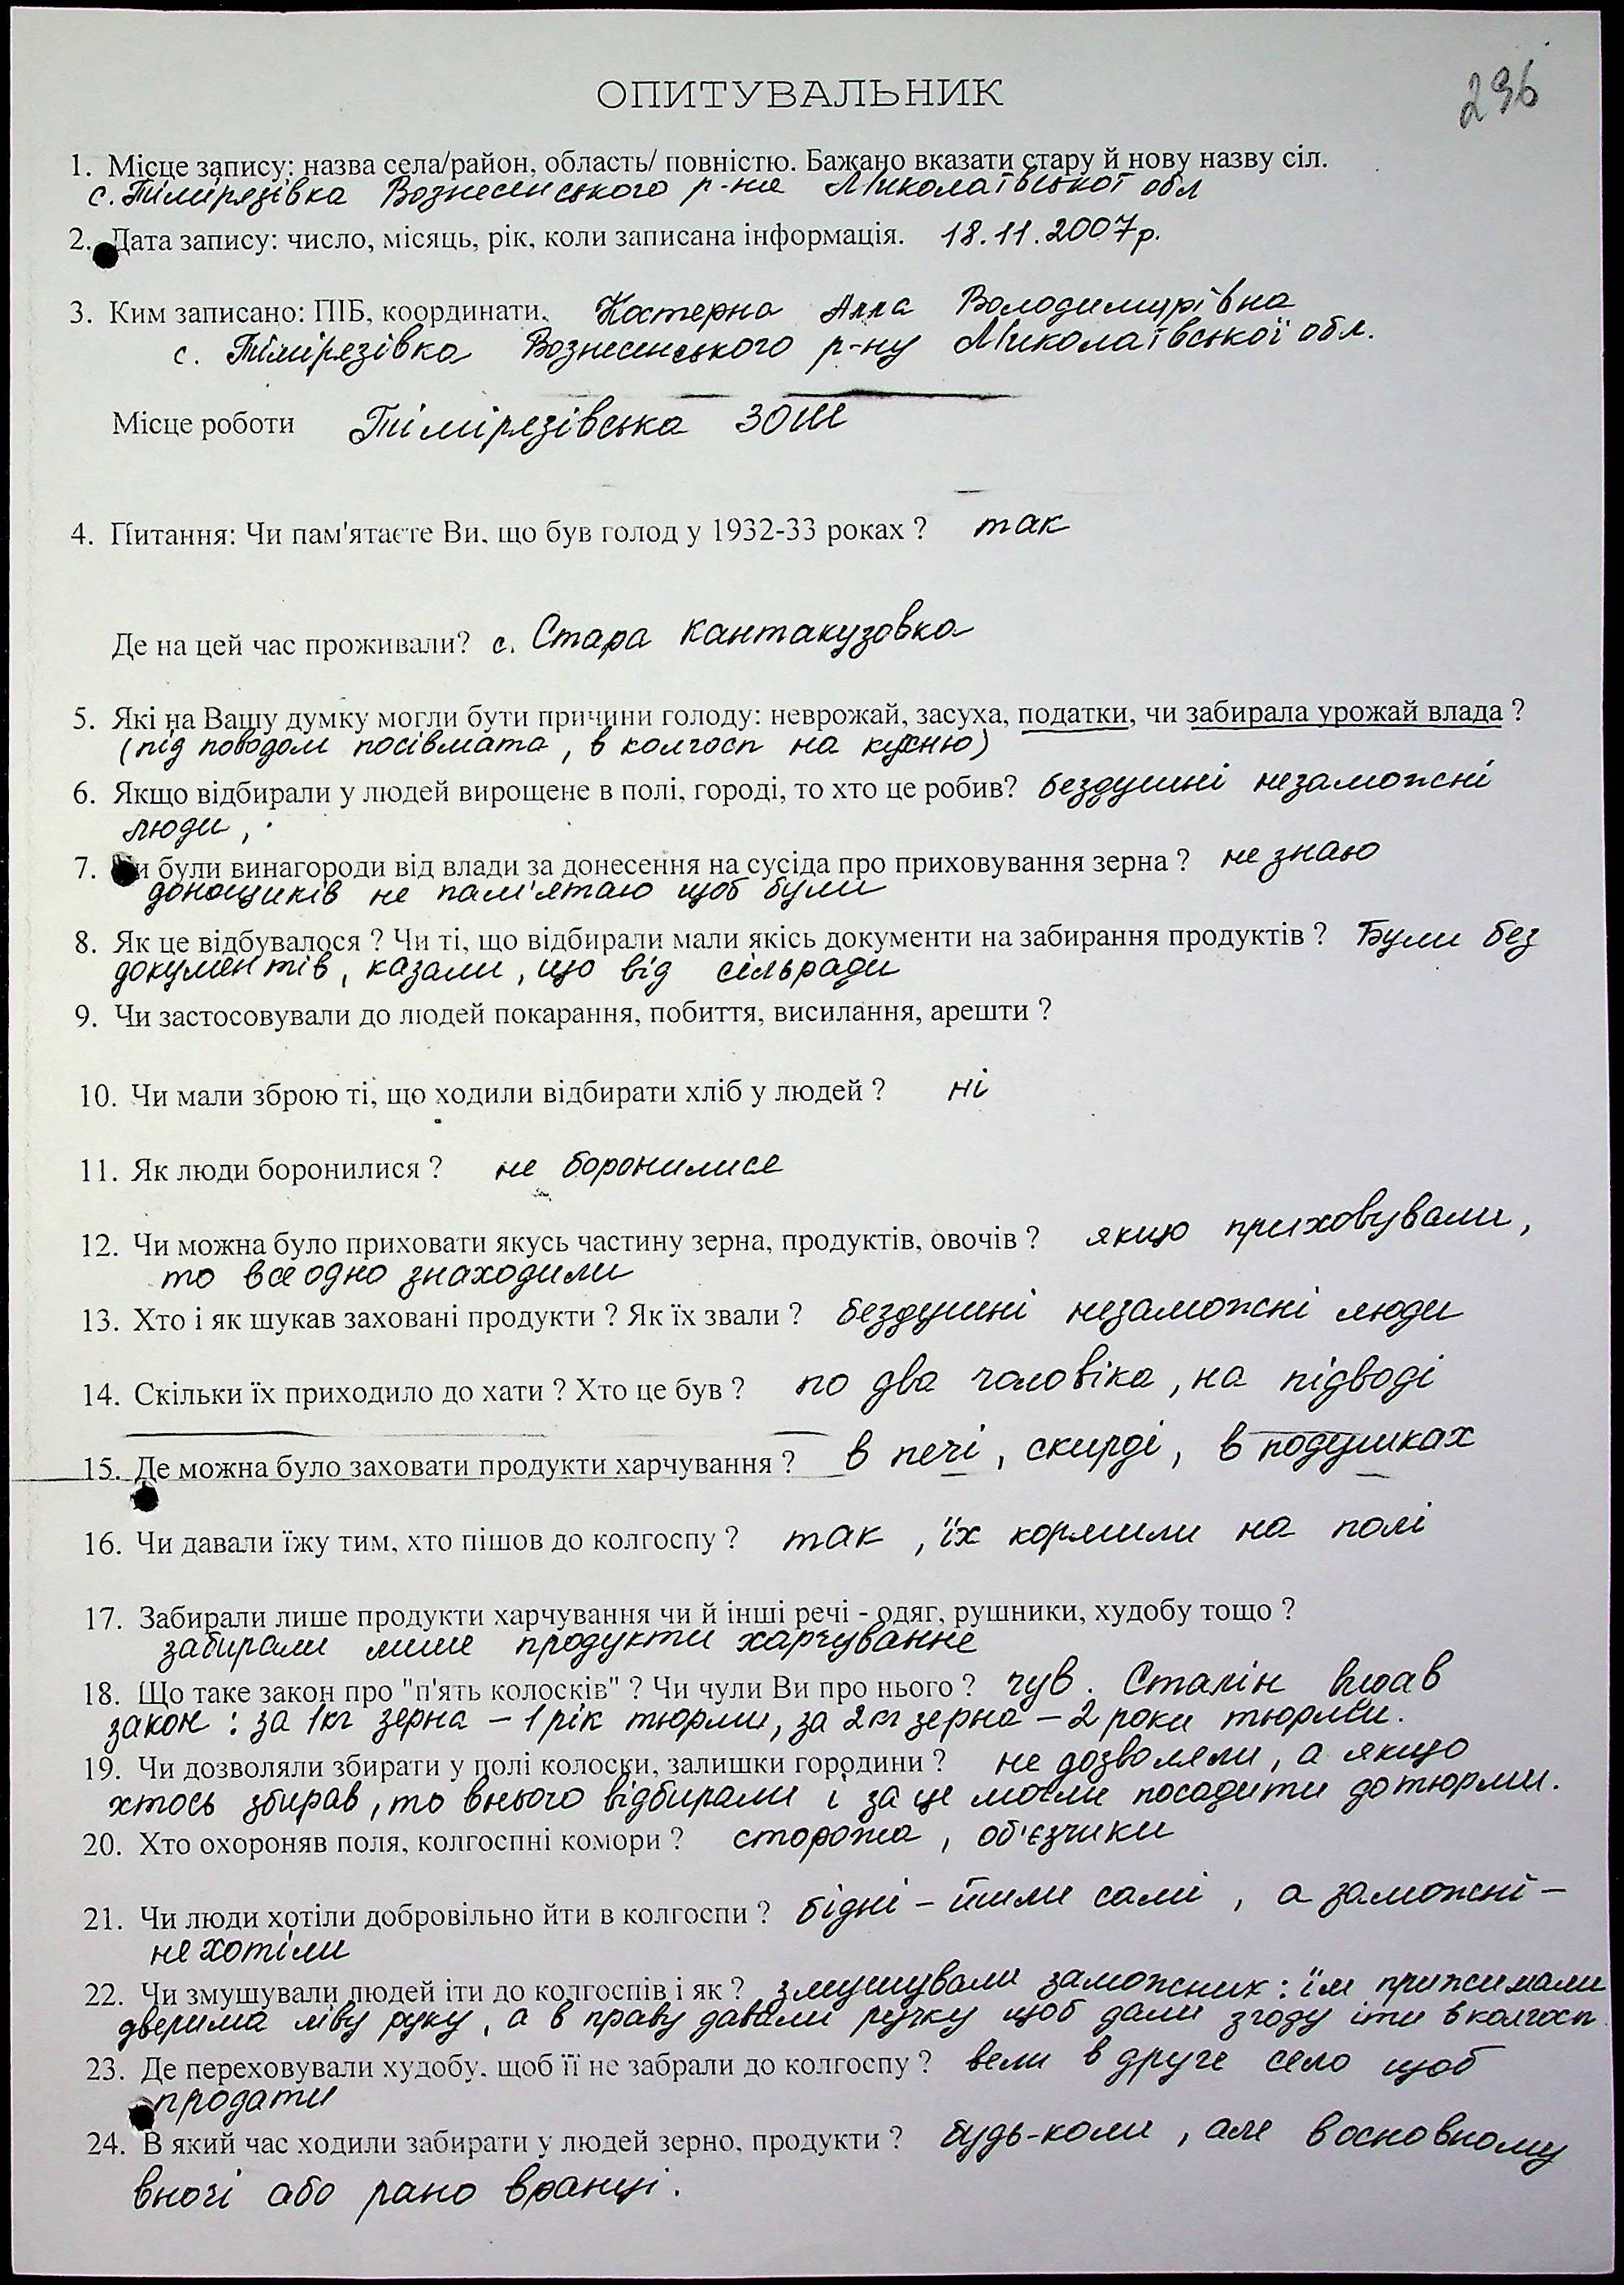 ОПИТУВАЛЬНИК
296
1. Місце запису: назва села/район, область/ повністю. Бажано вказати стару й нову назву сіл.
с. Тімірязівка Вознесенського р-на Миколаївської обл
2. Дата запису: число, місяць, рік, коли записана інформація. 18.11.2007р.
3. Ким записано: ПІБ, координати. Костерна Алла Володимирівна
с. Тімірязівка Вознесенського р-ну Миколаївської обл.
Місце роботи Тімірязівська ЗОШ
4. Питання: Чи пам'ятаєте Ви, що був голод у 1932-33 роках ? так
Де на цей час проживали? с. Стара Кантакузовка
5. Які на Вашу думку могли бути причини голоду: неврожай, засуха, податки, чи забирала урожай влада ?
(під поводом посівмата, в колгосп на кухню)
6. Якщо відбирали у людей вирощене в полі, городі, то хто це робив? бездушні незаможні
люди,
7. Чи були винагороди від влади за донесення на сусіда про приховування зерна ? не знаю
доносщиків не пам'ятаю щоб були
8. Як це відбувалося ? Чи ті, що відбирали мали якісь документи на забирання продуктів ? Були без
документів, казали, що від сільради
9. Чи застосовували до людей покарання, побиття, висилання, арешти ?
10. Чи мали зброю ті, що ходили відбирати хліб у людей ? ні
11. Як люди боронилися ? не боронилися
12. Чи можна було приховати якусь частину зерна, продуктів, овочів ? якщо приховували,
то все одно знаходили
13. Хто і як шукав заховані продукти ? Як їх звали ? бездушні незаможні люди
14. Скільки їх приходило до хати ? Хто це був ? по два чоловіка, на підводі
15. Де можна було заховати продукти харчування ? в печі, скирді, в подушках
16. Чи давали їжу тим, хто пішов до колгоспу ? так, їх кормили на полі
17. Забирали лише продукти харчування чи й інші речі - одяг, рушники, худобу тощо ?
забирали лише продукти харчування
18. Що таке закон про "п'ять колосків" ? Чи чули Ви про нього ? чув. Сталін видав
закон : за 1кг зерна – 1 рік тюрми, за 2 кг зерна – 2 роки тюрми.
19. Чи дозволяли збирати у полі колоски, залишки городини ? не дозволяли, а якщо
хтось збирав, то в нього відбирали і за це могли посадити до тюрми.
20. Хто охороняв поля, колгоспні комори ? сторожа, об'єзчики
21. Чи люди хотіли добровільно йти в колгоспи ? бідні – йшли самі, а заможні –
не хотіли
22. Чи змушували людей іти до колгоспів і як ? змушували заможних : їм прижимали
дверима ліву руку, а в праву давали ручку щоб дали згоду іти в колгосп
23. Де переховували худобу, щоб її не забрали до колгоспу ? вели в друге село щоб
продати
24. В який час ходили забирати у людей зерно, продукти ? будь-коли, але в основному
вночі або рано вранці.